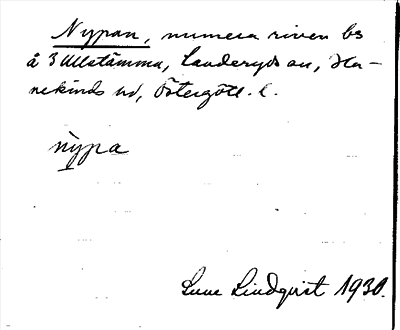 Nypan, numera riven bs
å 3 Ullstämma, Landeryds sn, Ha-
nekinds hd, Östergötl. l.
nypa
Sune Lindqvist 1930.